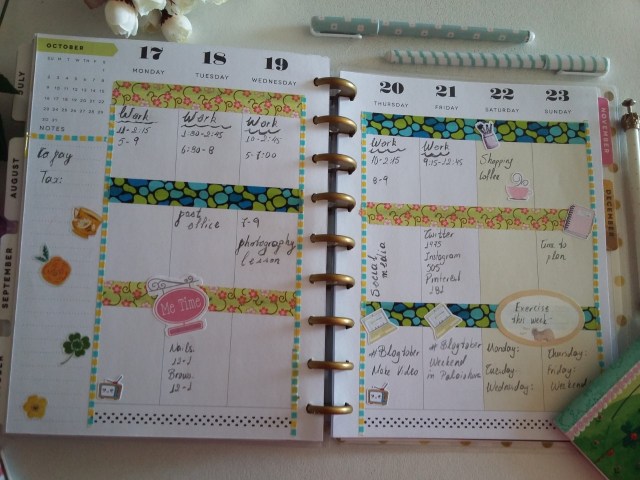 OCTOBER
17
MONDAY
18
TUESDAY
19
WEDNESDAY
NOTES
to pay
Tax:
Work
5-9
Work
6:30-8
Work
10-2:45
5-8:00
post
office
7-9
photography
lesson
Me Time
Nails
12-1
Brows
12-1
JULY
AUGUST
SEPTEMBER
20
THURSDAY
21
FRIDAY
22
SATURDAY
23
SUNDAY
Work
10-2:15
8-9
Work
9:15-12:45
Shopping
Coffee
Social
media
Twitter
1995
Instagram
505
Pinterest
281
time to
plan
#Blogtober
Make Video
#Blogtober
Weekend
in
Exercise
this week
Monday:
Tuesday:
Wednesday:
Thursday:
Friday:
Weekend:
NOVEMBER
DECEMBER